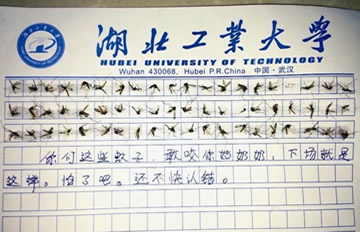 湖北工業大學
HUBEI UNIVERSITY OF TECHNOLOGY
Wuhan 430068, Hubei P.R.China 中国·武汉
你们这些蚊子，敢咬你姑奶奶，下场就是
这样。怕了吧。还不快认结。